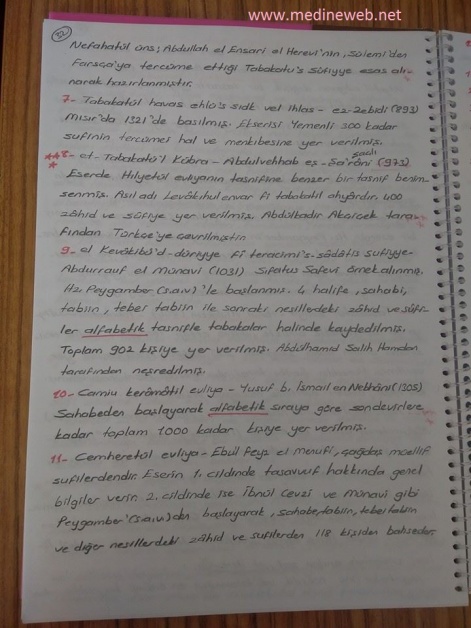 www.medineweb.net
22
Nefahatül üns; Abdullah el Ensari el Herevi'nin, Sülemi'den
Farsça'ya tercüme ettiği Tabakatu's sûfiyye esas alı-
narak hazırlanmıştır.
7- Tabakatül havas ehlo's sıdk vel ihlas - ez-Zebidi (893)
Mısır'da 1321'de basılmış. Ekserisi Yemenli 300 kadar
sufinin tercümei hal ve menkıbesine yer verilmiş.
8- et-Tabakatü'l Kübra - Abdulvehhab eş-Şa'râni (973)
Eserde Hilyetül evliyanın tasnifine benzer bir tasnif benim-
senmiş. Asıl adı Levâkıhul envar fi tabakatil ahyârdır. 400
zâhid ve sûfiye yer verilmiş. Abdülkadir Akçiçek tara-
fından Türkçe'ye çevrilmiştir.
9- el Kevâkibü'd-dürriyye fî teracimi's-sâdâtis sufiyye-
Abdurrauf el Münavi (1031) Sıfatus Safevi örnek alınmış.
Hz. Peygamber (s.a.v.)'le başlanmış. 4 halife, sahabi,
tabiin, tebei tabiin ile sonraki nesillerdeki zâhid ve sûfi-
ler alfabetik tasnifle tabakalar halinde kaydedilmiş.
Toplam 902 kişiye yer verilmiş. Abdülhamid Salih Hamdan
tarafından neşredilmiş.
10- Camiu kerâmâtil evliya - Yusuf b. İsmail en Nebhâni (1305)
Sahabeden başlayarak alfabetik sıraya göre son devirlere
kadar toplam 1000 kadar kişiye yer verilmiş.
11- Cemheretül evliya - Ebül Feyz el menufi, çağdaş müellif
sufilerdendir. Eserin 1. cildinde tasavvuf hakkında genel
bilgiler verir. 2. cildinde ise İbnül Cevzi ve Münavi gibi
Peygamber (s.a.v.)'den başlayarak, sahabe, tabiin, tebei tabiin
ve diğer nesillerdeki zâhid ve sufilerden 118 kişiden bahseder.